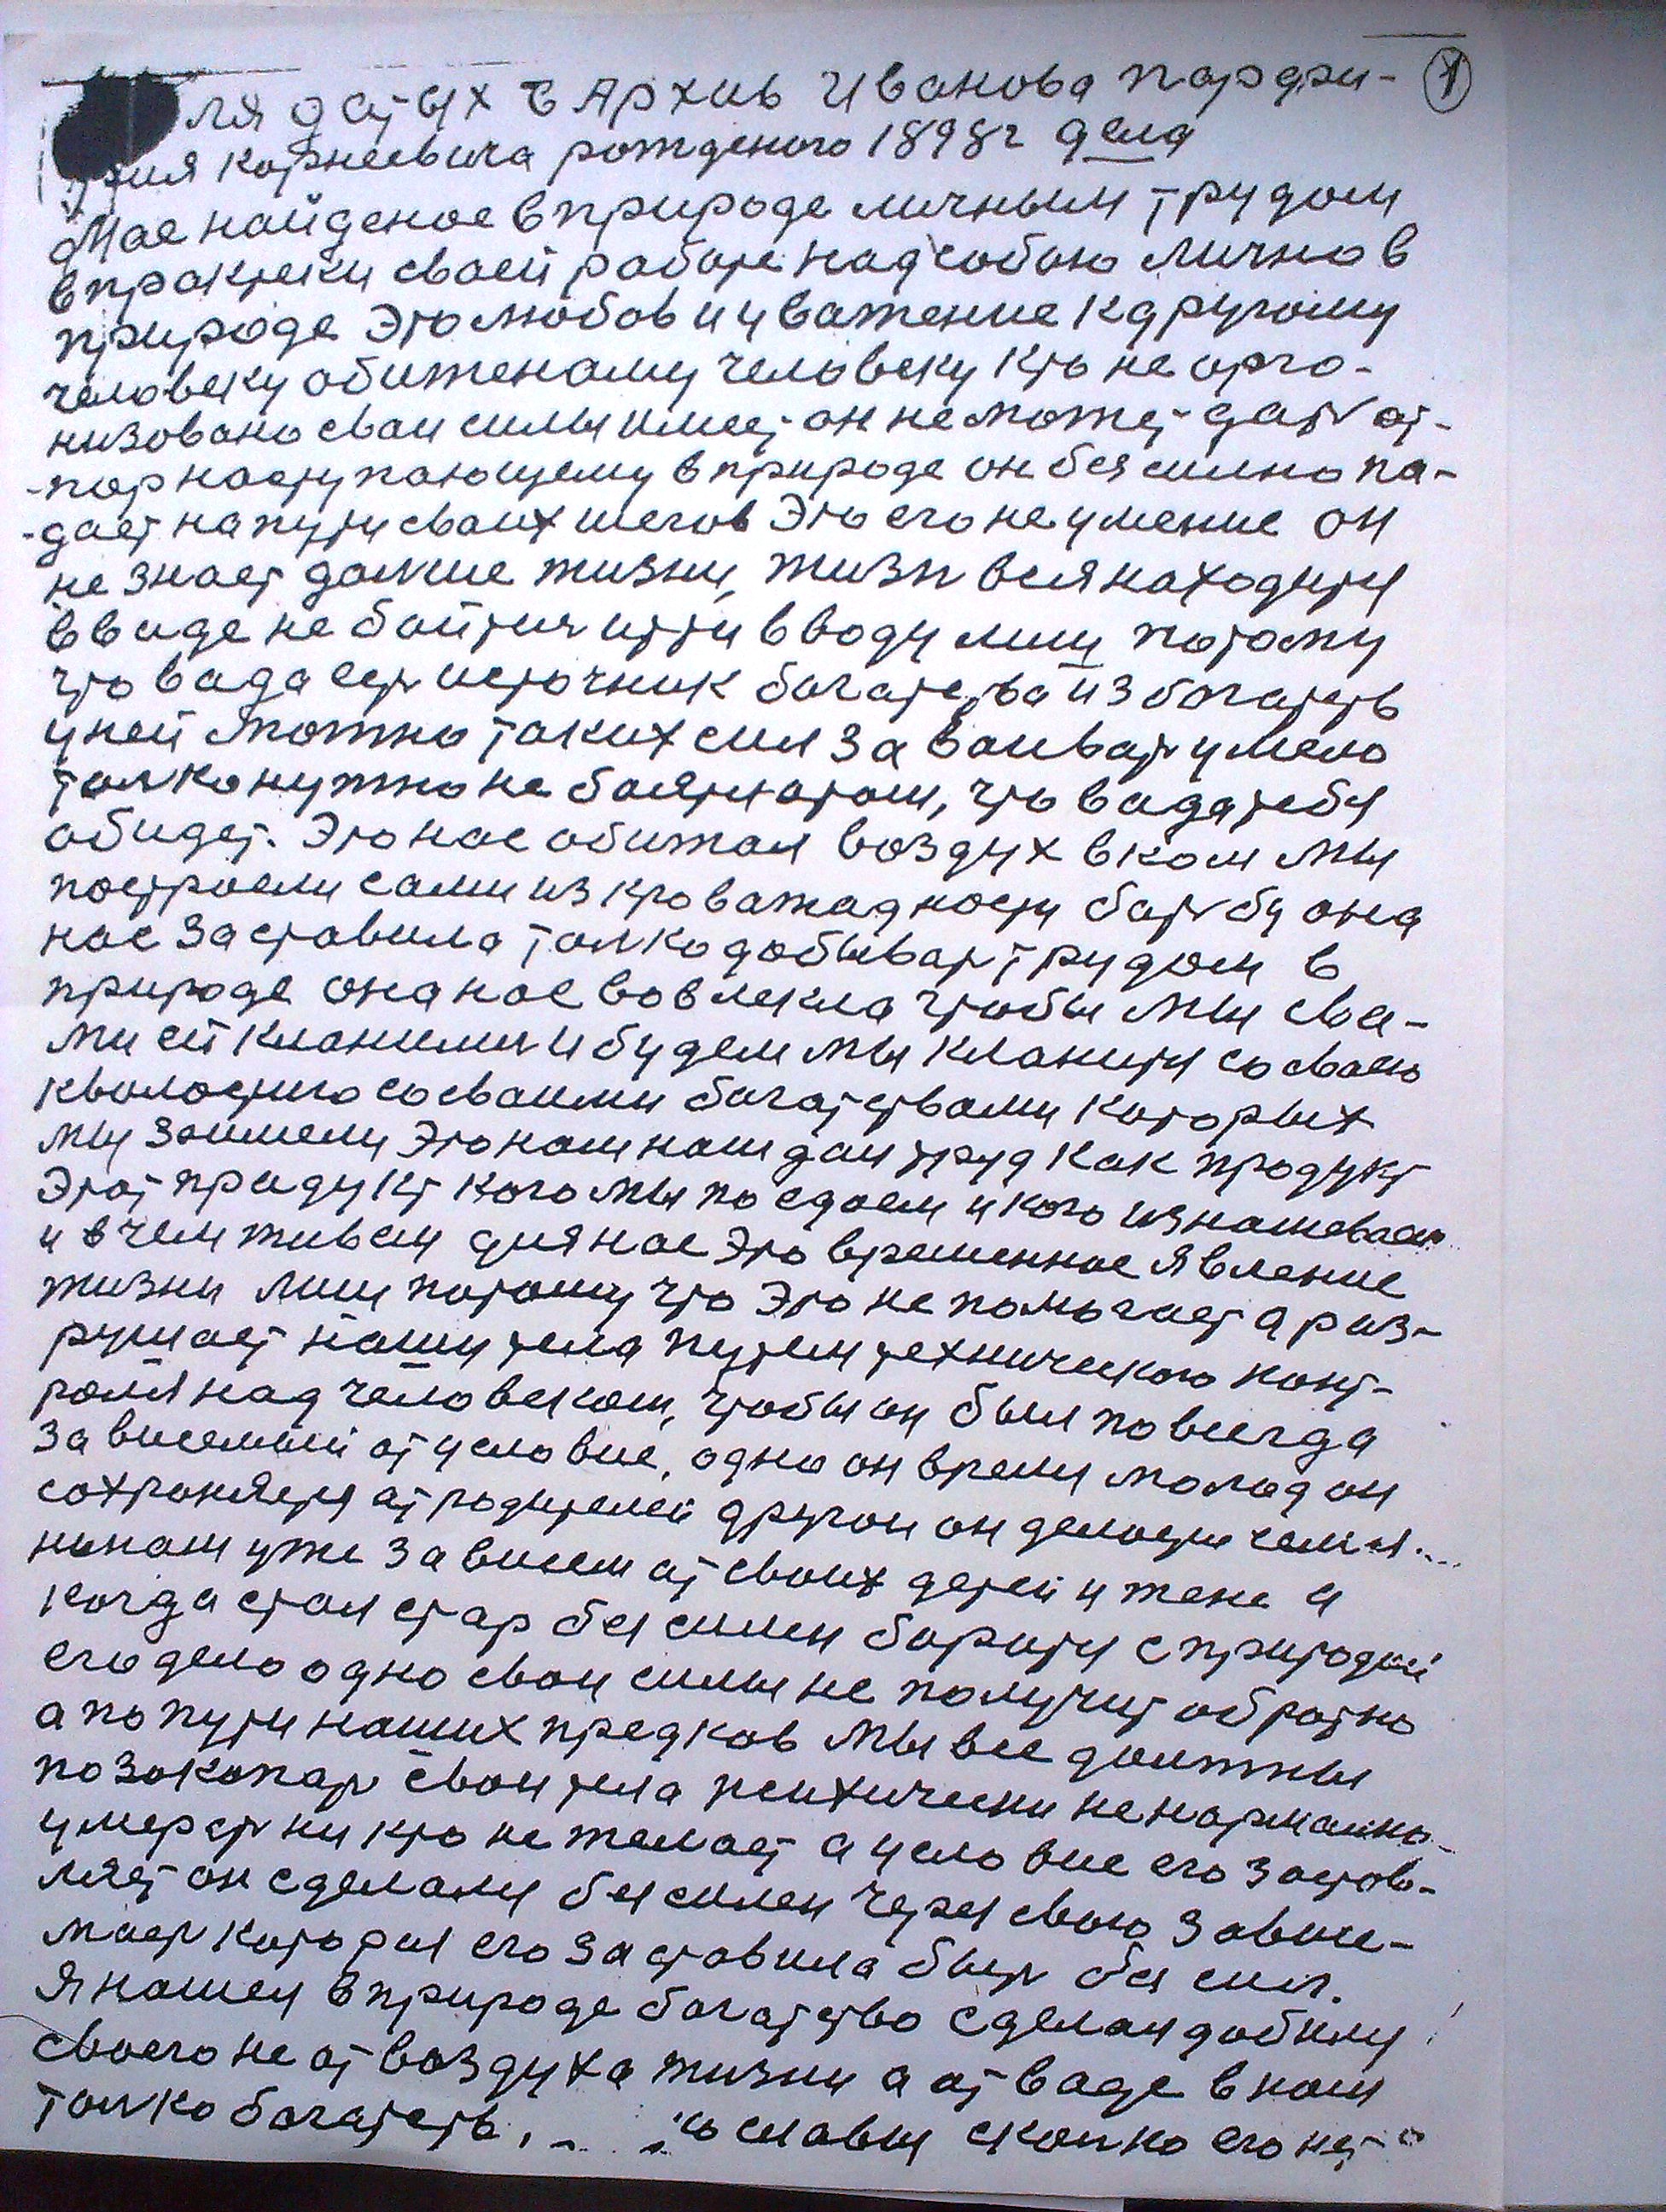 ля датых в Архив Иванова парфи- 1
рия Корнеевича рожденого 1898г дела
Мае найденое в природе личным трудом
в практеки своей работе над собою лично в
природе Это любов и уважение к другому
человеку обиженаму человеку кто не орга-
низовано сваи силы имеет он не может дать от-
пор наступающему в природе он безсилно па-
дает на пути сваих шегов Это его неумение он
не знает далше жизни, жизнь вся находится
в ваде не байтися итти в воду лиш потому
что вада есть источник богатства из богатств
у ней можно таких сил заваивать умело
толко нужно не боятся отом, что вада тебя
обидет. Это нас обижал воздух в ком мы
построели сами из кроважадности батьбу она
нас заставила толко добывать трудом в
природе она нас вовлекла чтобы мы сва-
ми ей кланимся и будем мы кланится со сваею
кволостию со сваими богатствами каторых
мы заимели Это нам наш дал труд как продукт
Этот прадукт кого мы поедаем и кого изнашеваем
и в чем живем для нас Это временное явление
жизни лиш потому что Это не помогает а раз-
рушает нашы тела путем технического конт-
роля над человеком, чтобы он был повсегда
зависемый от условие, одно он время молад он
сохроняется от родителей другои он делается
ником уже зависем от своих детей и жене а
когда стал стар безсилен боротся с природой
его дело одно свои силы не получит обратно
а по пути наших предков мы все должны
позокопать свои тела психически не нормално
умереть ни кто не желает а условие его застов-
ляет он сделался безсилен через свою зависе-
масть которая его заставила быть без сил.
Я нашел в природе богатство сделал добился
своего не от воздуха жизни а от ваде в ком
толко богатств, славы сколко его нет